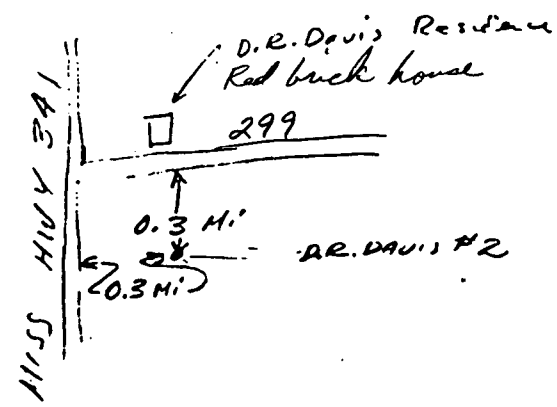 D.R. Davis Residence
Red brick house
299
MISS HIWY 341
0.3 Mi
D.R. DAVIS #2
0.3 Mi